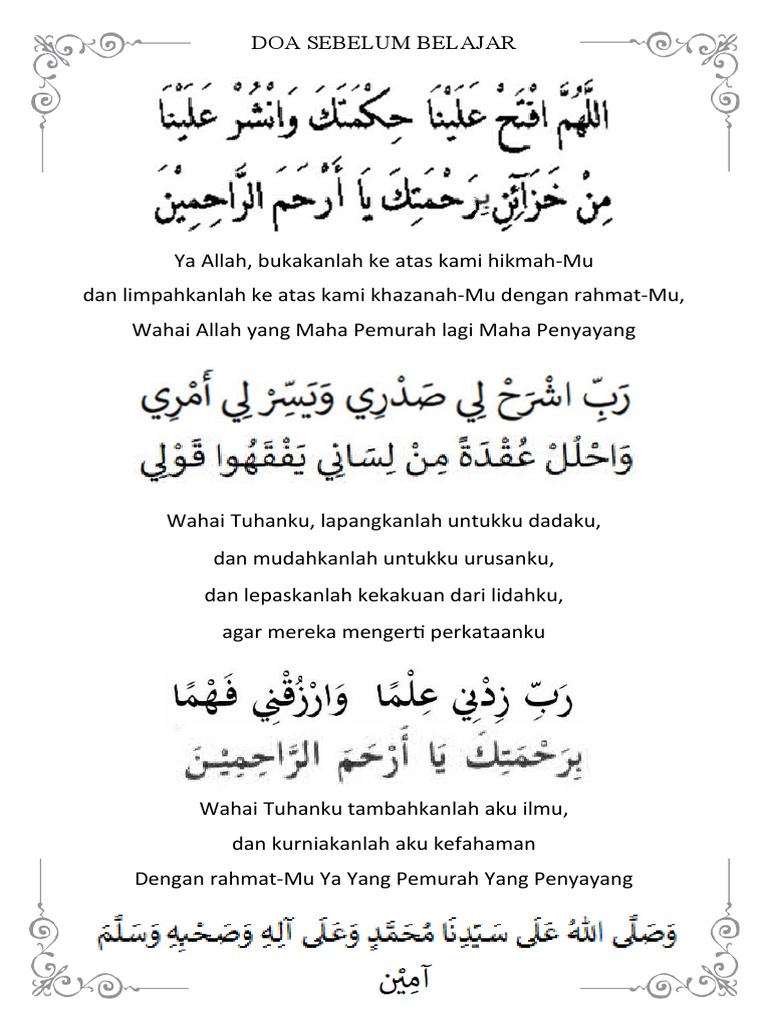 DOA SEBELUM BELAJAR
اللَّهُمَّ افْتَحْ عَلَيْنَا حِكْمَتَكَ وَانْشُرْ عَلَيْنَا
مِنْ خَزَآئِنِ بِرَحْمَتِكَ يَا أَرْحَمَ الرَّاحِمِيْنَ
Ya Allah, bukakanlah ke atas kami hikmah-Mu
dan limpahkanlah ke atas kami khazanah-Mu dengan rahmat-Mu,
Wahai Allah yang Maha Pemurah lagi Maha Penyayang
رَبِّ اشْرَحْ لِي صَدْرِي وَيَسِّرْ لِي أَمْرِي
وَاحْلُلْ عُقْدَةً مِنْ لِسَانِي يَفْقَهُوا قَوْلِي
Wahai Tuhanku, lapangkanlah untukku dadaku,
dan mudahkanlah untukku urusanku,
dan lepaskanlah kekakuan dari lidahku,
agar mereka mengerti perkataanku
رَبِّ زِدْنِي عِلْمًا وَارْزُقْنِي فَهْمًا
بِرَحْمَتِكَ يَا أَرْحَمَ الرَّاحِمِيْنَ
Wahai Tuhanku tambahkanlah aku ilmu,
dan kurniakanlah aku kefahaman
Dengan rahmat-Mu Ya Yang Pemurah Yang Penyayang
وَصَلَّى اللهُ عَلَى سَيِّدِنَا مُحَمَّدٍ وَعَلَى آلِهِ وَصَحْبِهِ وَسَلَّمَ
آمِيْن